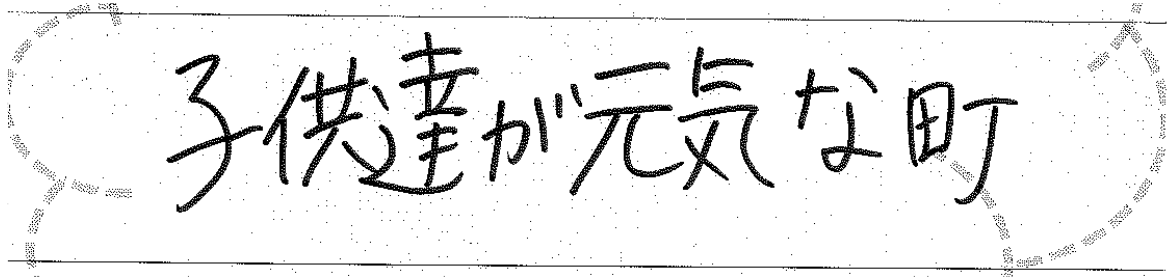 子供達が元気な町